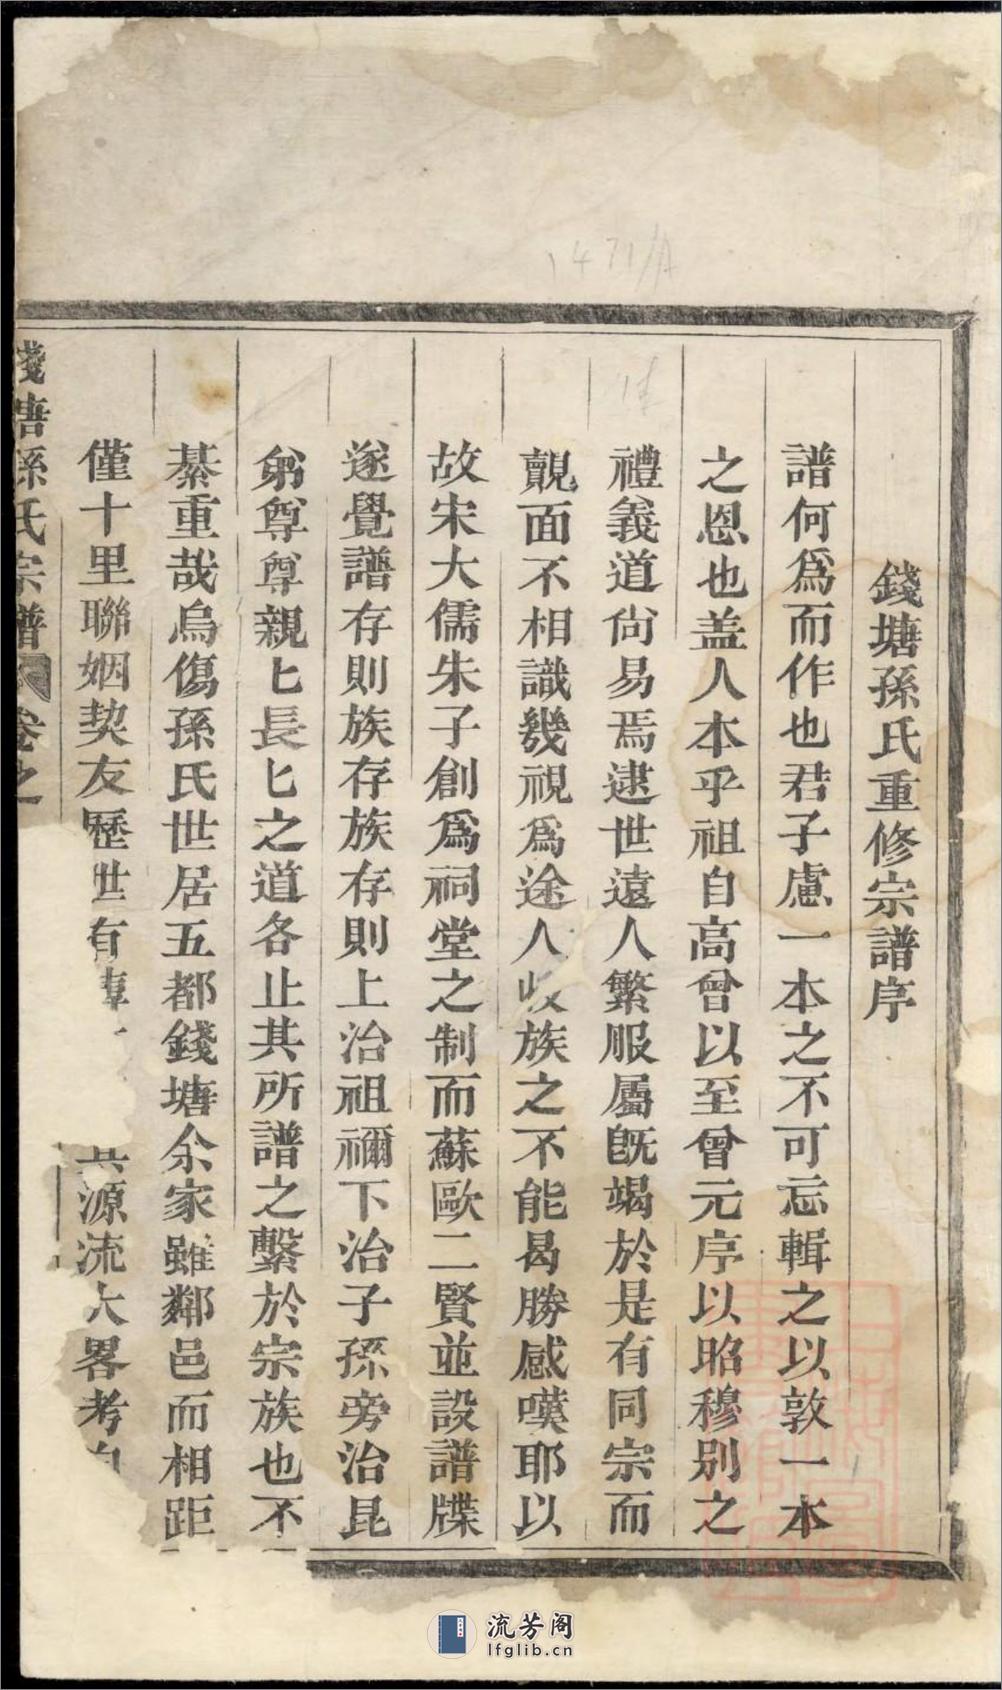 錢塘孫氏重修宗譜序
譜何爲而作也君子慮一本之不可忘輯之以敦一本
之恩也盖人本乎祖自高曾以至曾元序以昭穆別之
禮義道尙易焉逮世遠人繁服屬旣竭於是有同宗而
覿面不相識幾視爲途人歧族之不能曷勝感嘆耶以
故宋大儒朱子創爲祠堂之制而蘇歐二賢並設譜牒
遂覺譜存則族存族存則上治祖禰下治子孫旁治昆
弟尊尊親匕長匕之道各止其所譜之繫於宗族也不
綦重哉烏傷孫氏世居五都錢塘余家雖鄰邑而相距
僅十里聯姻契友歷世有
源流大畧考
錢塘孫氏宗譜 卷之
1471/A
流芳阁
lfglib.cn